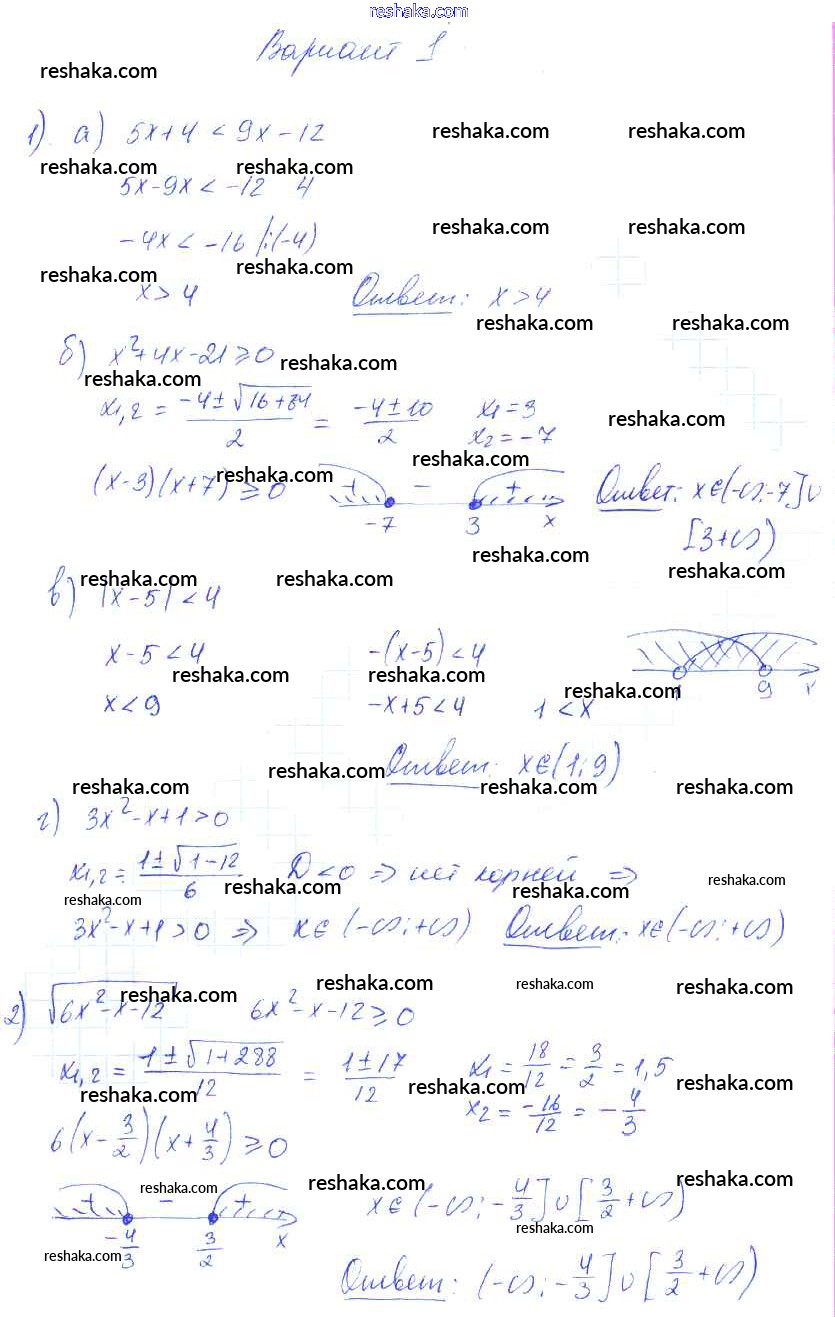 reshaka.com
Вариант 1
reshaka.com
1) а) 5x+4 < 9x-12 reshaka.com reshaka.com
reshaka.com reshaka.com
5x-9x < -12 4
-4x < -16 |:(-4) reshaka.com reshaka.com
reshaka.com reshaka.com
x > 4 Ответ: x > 4
reshaka.com reshaka.com
б) x²+4x-21 ≥ 0 reshaka.com
reshaka.com
x1,2 = (-4±√(16+84))/2 = (-4±10)/2 x1 = 3 reshaka.com
x2 = -7
reshaka.com
(x-3)(x+7) ≥ 0 reshaka.com + - + Ответ: x∈(-∞;-7]∪
-7 3 x [3+∞)
reshaka.com
reshaka.com reshaka.com reshaka.com
в) |x-5| < 4
x-5 < 4 -(x-5) < 4
reshaka.com reshaka.com reshaka.com
1 9 x
x < 9 -x+5 < 4 1 < x
Ответ: x∈(1;9)
reshaka.com
reshaka.com reshaka.com reshaka.com
г) 3x²-x+1 > 0
x1,2 = (1±√(1-12))/6 D<0 ⇒ нет корней ⇒
reshaka.com reshaka.com reshaka.com
reshaka.com
3x²-x+1 > 0 ⇒ x∈(-∞;+∞) Ответ: x∈(-∞;+∞)
reshaka.com reshaka.com reshaka.com
2) √(6x²-x-12) reshaka.com 6x²-x-12 ≥ 0
x1,2 = (1±√(1+288))/12 = (1±17)/12 x1 = 18/12 = 3/2 = 1,5
reshaka.com reshaka.com
x2 = -16/12 = -4/3
6(x-3/2)(x+4/3) ≥ 0
reshaka.com reshaka.com reshaka.com
+ - + x∈(-∞;-4/3]∪[3/2+∞)
-4/3 3/2 x
reshaka.com
reshaka.com
Ответ: (-∞;-4/3]∪[3/2+∞)